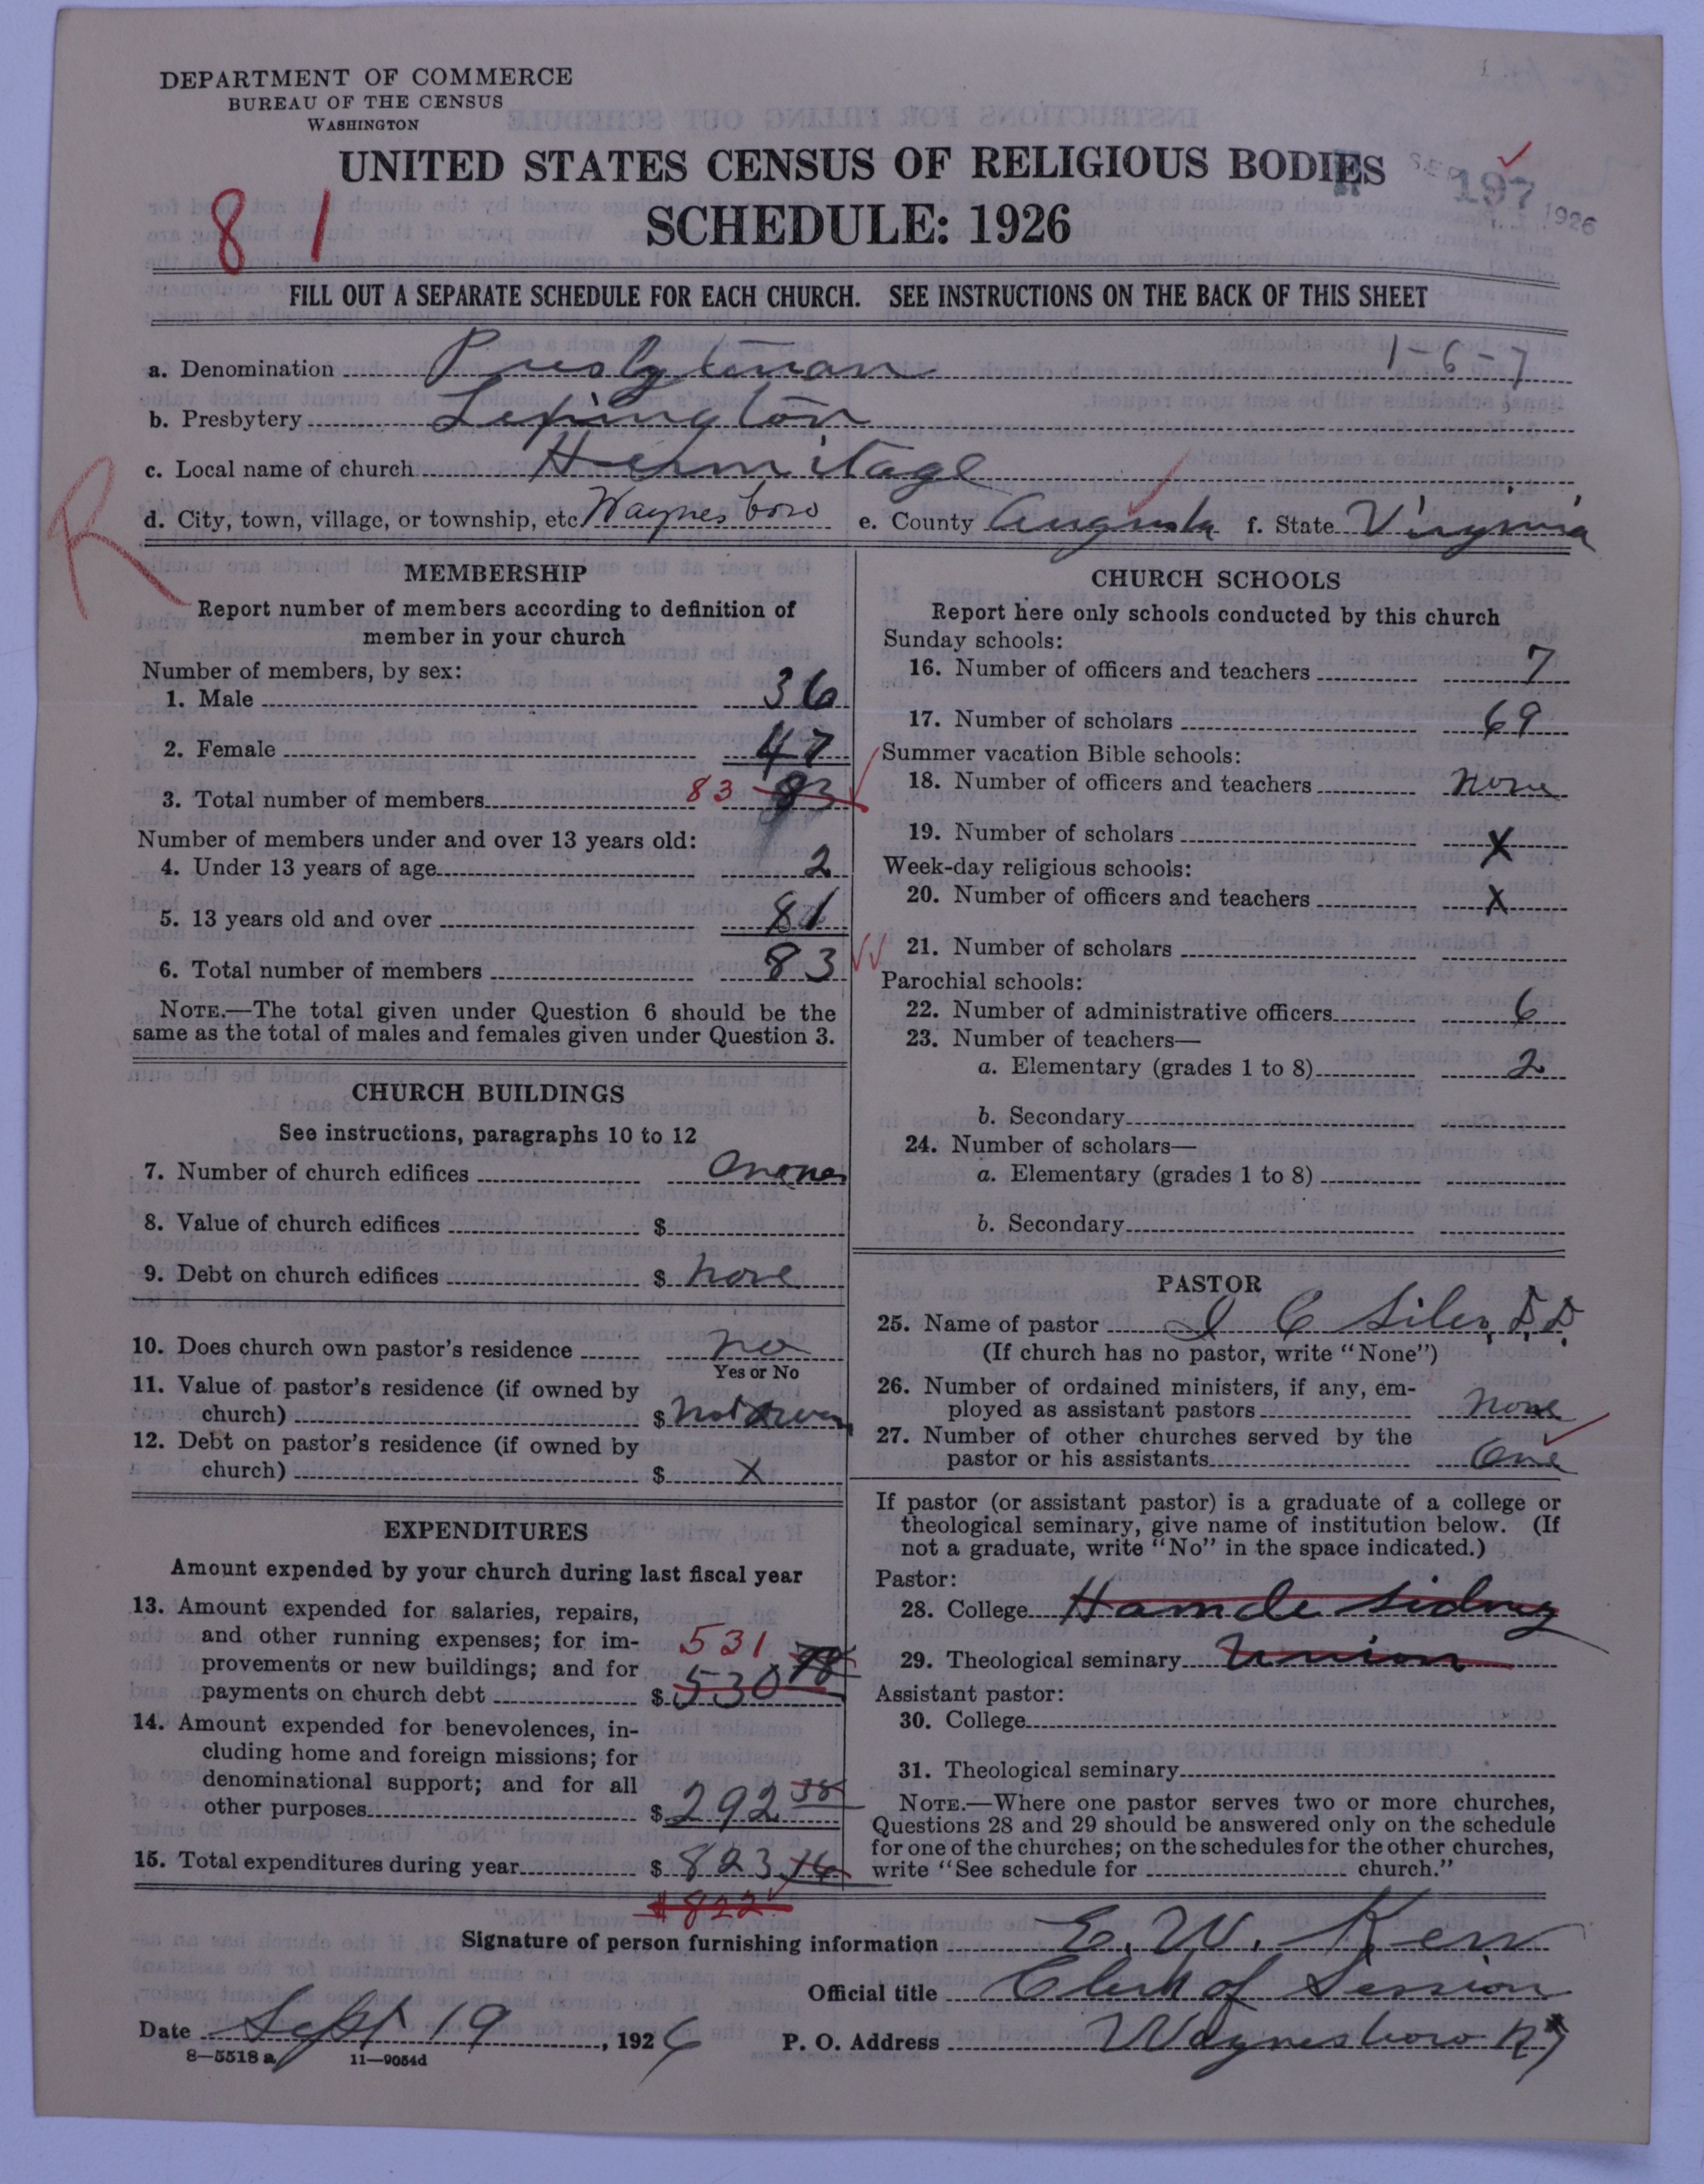 DEPARTMENT OF COMMERCE
BUREAU OF THE CENSUS
WASHINGTON
UNITED STATES CENSUS OF RELIGIOUS BODIES
SCHEDULE: 1926
81
197
1926
FILL OUT A SEPARATE SCHEDULE FOR EACH CHURCH. SEE INSTRUCTIONS ON THE BACK OF THIS SHEET
a. Denomination Presbyterian 1-6-7
b. Presbytery Lexington
c. Local name of church Hermitage
R
d. City, town, village, or township, etc. Waynesboro e. County Augusta f. State Virginia
MEMBERSHIP
Report number of members according to definition of
member in your church
Number of members, by sex:
1. Male 36
2. Female 47
3. Total number of members 83 83
Number of members under and over 13 years old:
4. Under 13 years of age 2
5. 13 years old and over 81
6. Total number of members 83
NOTE.—The total given under Question 6 should be the
same as the total of males and females given under Question 3.
CHURCH BUILDINGS
See instructions, paragraphs 10 to 12
7. Number of church edifices
8. Value of church edifices $
9. Debt on church edifices $ none
10. Does church own pastor's residence no
Yes or No
11. Value of pastor's residence (if owned by
church) $ not
12. Debt on pastor's residence (if owned by
church) $ X
EXPENDITURES
Amount expended by your church during last fiscal year
13. Amount expended for salaries, repairs,
and other running expenses; for im-
provements or new buildings; and for
payments on church debt $ 530 78
531
14. Amount expended for benevolences, in-
cluding home and foreign missions; for
denominational support; and for all
other purposes $ 292 38
15. Total expenditures during year $ 823.16
$822
CHURCH SCHOOLS
Report here only schools conducted by this church
Sunday schools:
16. Number of officers and teachers 7
17. Number of scholars 69
Summer vacation Bible schools:
18. Number of officers and teachers none
19. Number of scholars X
Week-day religious schools:
20. Number of officers and teachers X
21. Number of scholars
Parochial schools:
22. Number of administrative officers 6
23. Number of teachers—
a. Elementary (grades 1 to 8) 2
b. Secondary
24. Number of scholars—
a. Elementary (grades 1 to 8)
b. Secondary
PASTOR
25. Name of pastor J C Siler, D.D.
(If church has no pastor, write "None")
26. Number of ordained ministers, if any, em-
ployed as assistant pastors none
27. Number of other churches served by the
pastor or his assistants One
If pastor (or assistant pastor) is a graduate of a college or
theological seminary, give name of institution below. (If
not a graduate, write "No" in the space indicated.)
Pastor:
28. College Hamde Sidney
29. Theological seminary Union
Assistant pastor:
30. College
31. Theological seminary
NOTE.—Where one pastor serves two or more churches,
Questions 28 and 29 should be answered only on the schedule
for one of the churches; on the schedules for the other churches,
write "See schedule for church."
Signature of person furnishing information E. W. Kerr
Official title Clerk of Session
Date Sept 19, 1926 P. O. Address Waynesboro
8—5518 a 11—9054d